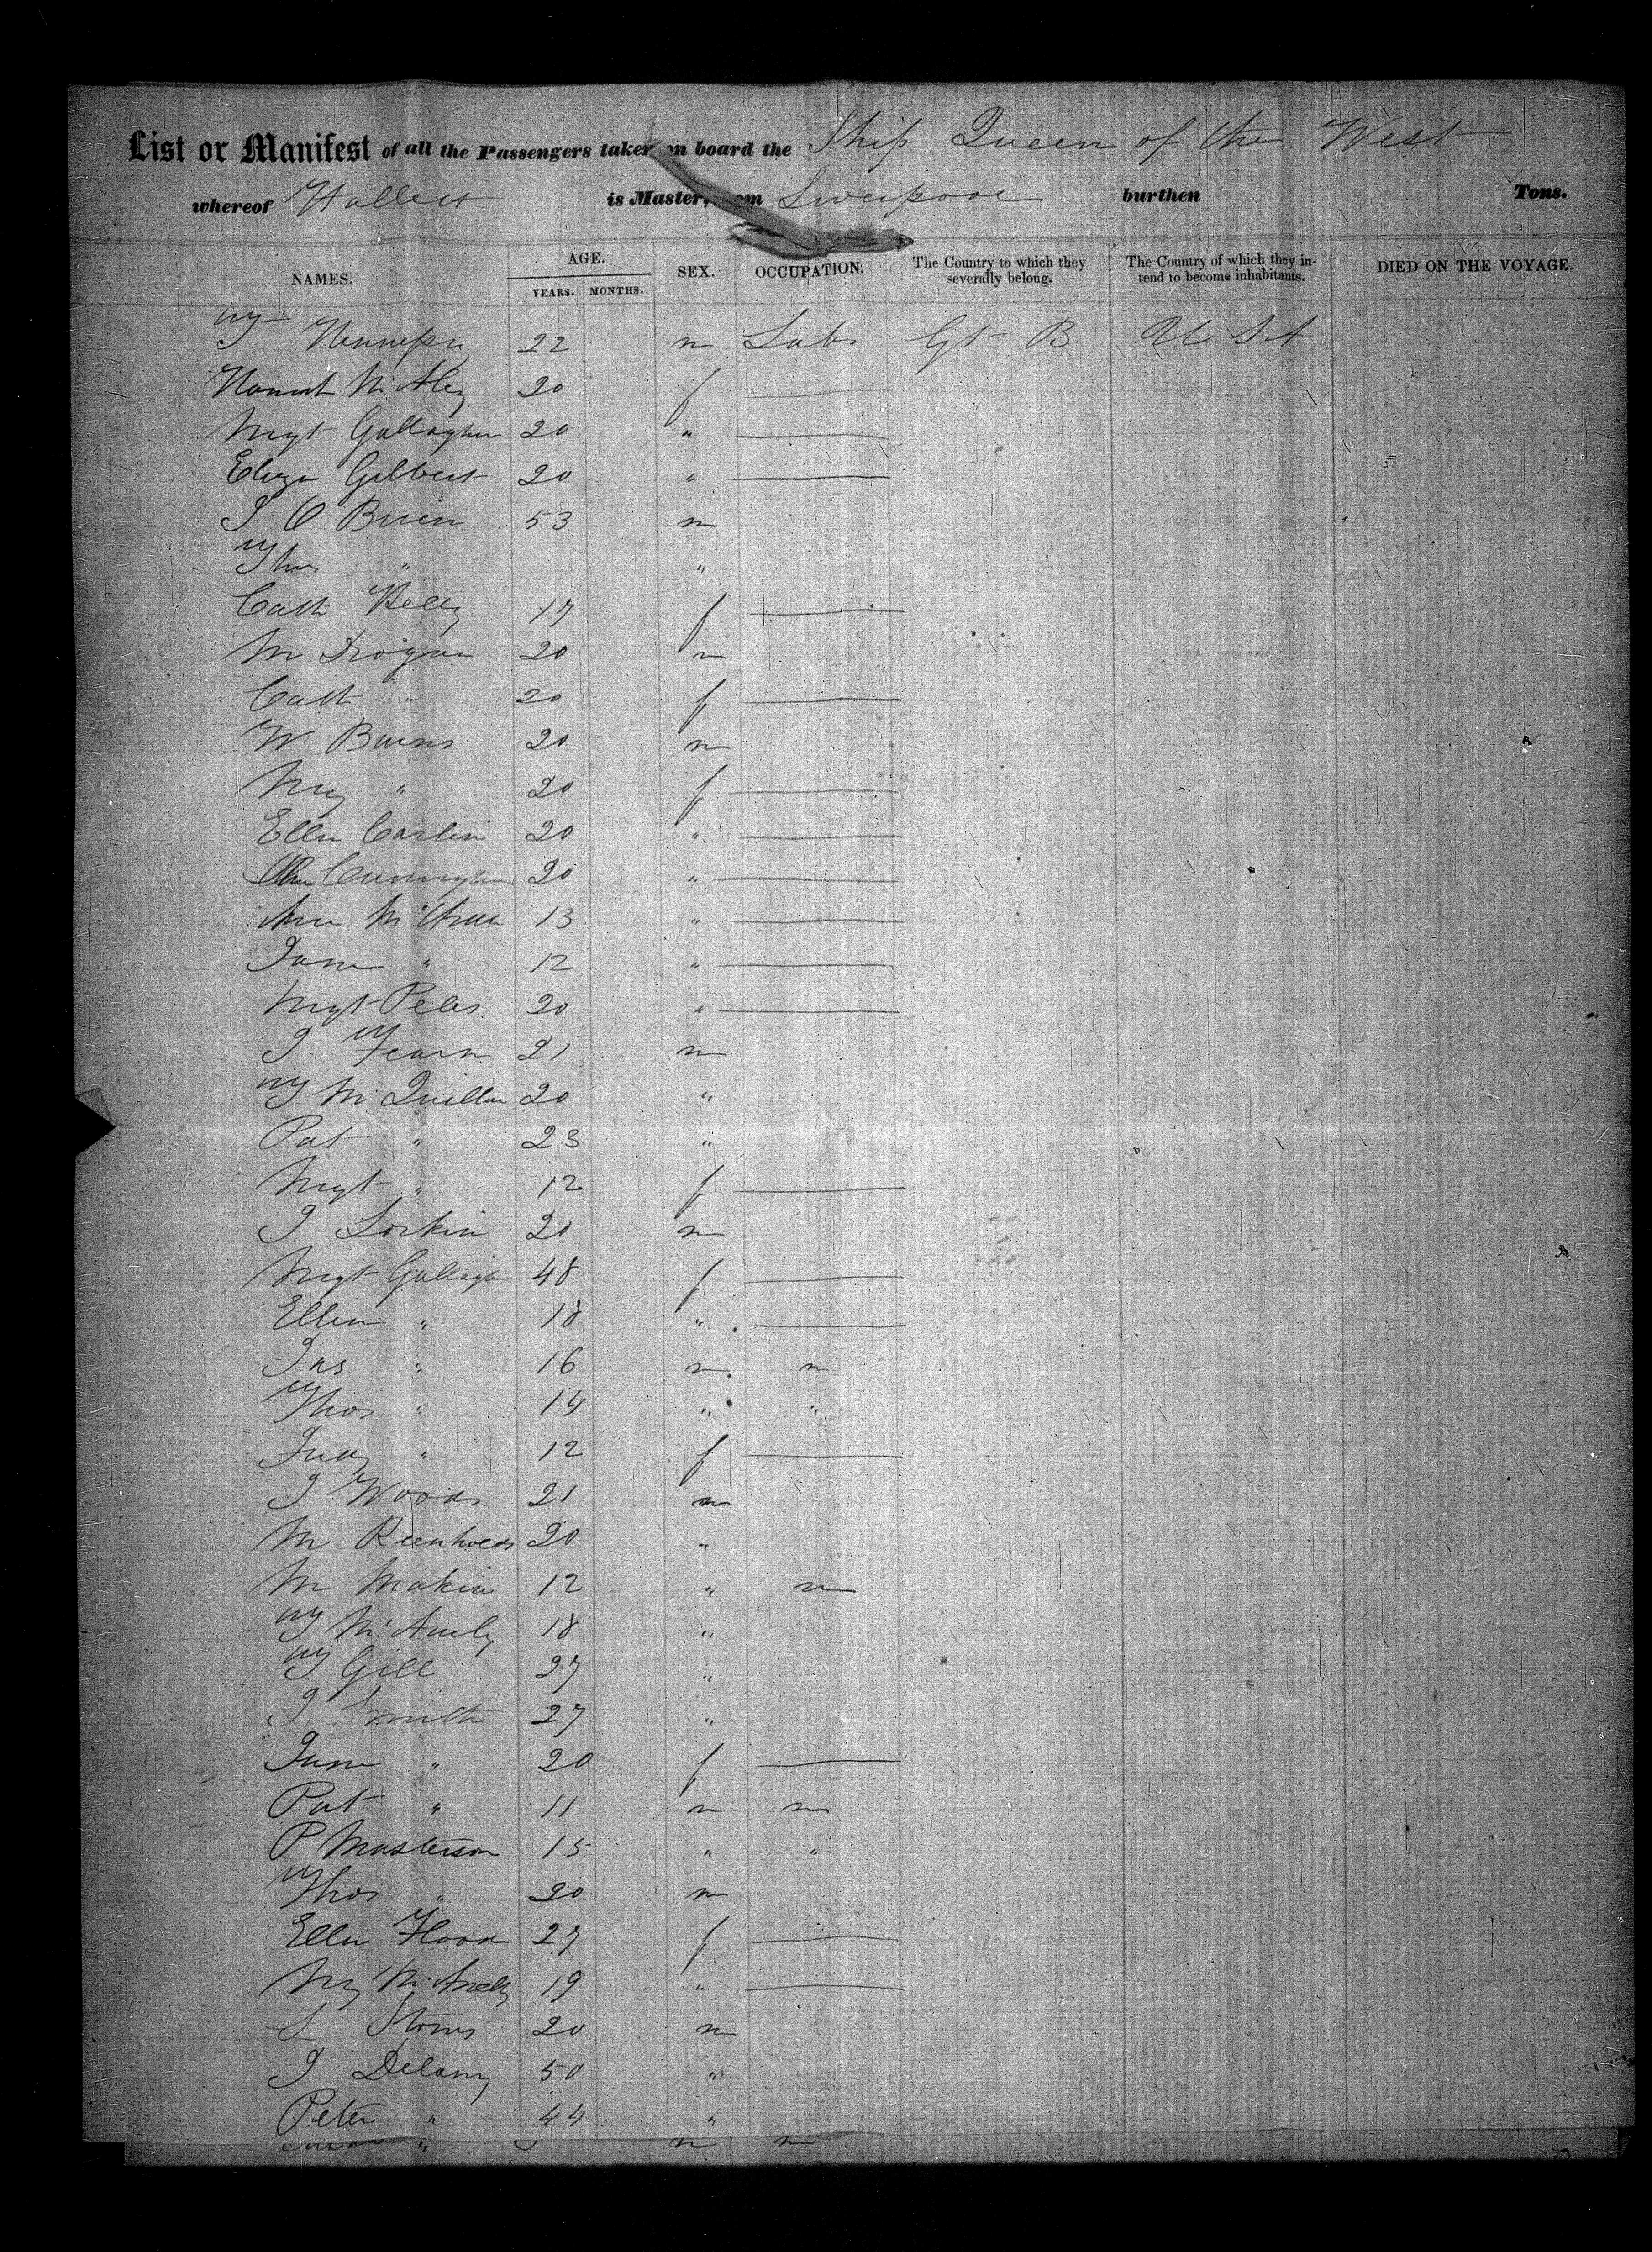 List or Manifest of all the Passengers taken on board the Ship Queen of the West
whereof Hallett is Master, from Liverpool burthen Tons.
NAMES. AGE. YEARS. MONTHS. SEX. OCCUPATION. The Country to which they severally belong. The Country of which they intend to become inhabitants. DIED ON THE VOYAGE.
22 m Labr Gt B U S A
20 f
Mgt Gallagher 20 "
Eliza Gilbert 20 "
J O Brien 53 m
Thos " "
Cath Kelly 17 f
M Drogan 20 m
Cath " 20 f
W Burns 20 m
My " 20 f
Ellen Carlin 20 "
Cunningham 20 "
Ann 13 "
Jane " 12 "
Mgt Peles 20 "
J Fearn 21 m
T McQuillan 20 "
Pat " 23 "
Mgt " 12 f
J Lorkin 20 m
Mgt Gallagh 48 f
Ellen " 18 "
Jas " 16 m m
Thos " 14 " "
Judy " 12 f
J Woods 21 m
M 20 "
M Makin 12 " m
T 18 "
T Gill 27 "
J Smith 27 "
Jane " 20 f
Pat " 11 m m
P Masterson 15 " "
Thos " 20 m
Ellen Flood 27 f
My 19 "
L Stones 20 m
J Delany 50 "
Peter " 44 "
" m m